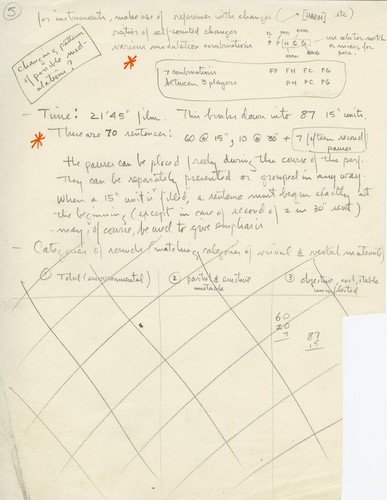 5
for instruments, make use of references with changes (→ HARM etc)
series of self-counted changes
various modulation combinations
F F H C G
use selector switch
or mixers for
same.
changing pattern
of possible mod-
ulations?
7 combinations FF FH FC FG
between 3 players PH PC PG
- Time: 21'45" film. This breaks down into 87 15" units.
There are 70 sentences: 60 @ 15", 10 @ 30" + 7 fifteen second
pauses
The pauses can be placed freely during the course of the perf.
They can be separately presented or grouped in any way.
When a 15" unit is "filled", a sentence must begin exactly at
the beginning (except in case of second of 2 in 30" sent)
- may, of course, be used to give emphasis
- Categories of sounds (matching categories of visual & verbal materials)
1 Total/environmental) 2 partial & emotive 3 objective, cool, stable
mutable
60
20
7 87
15